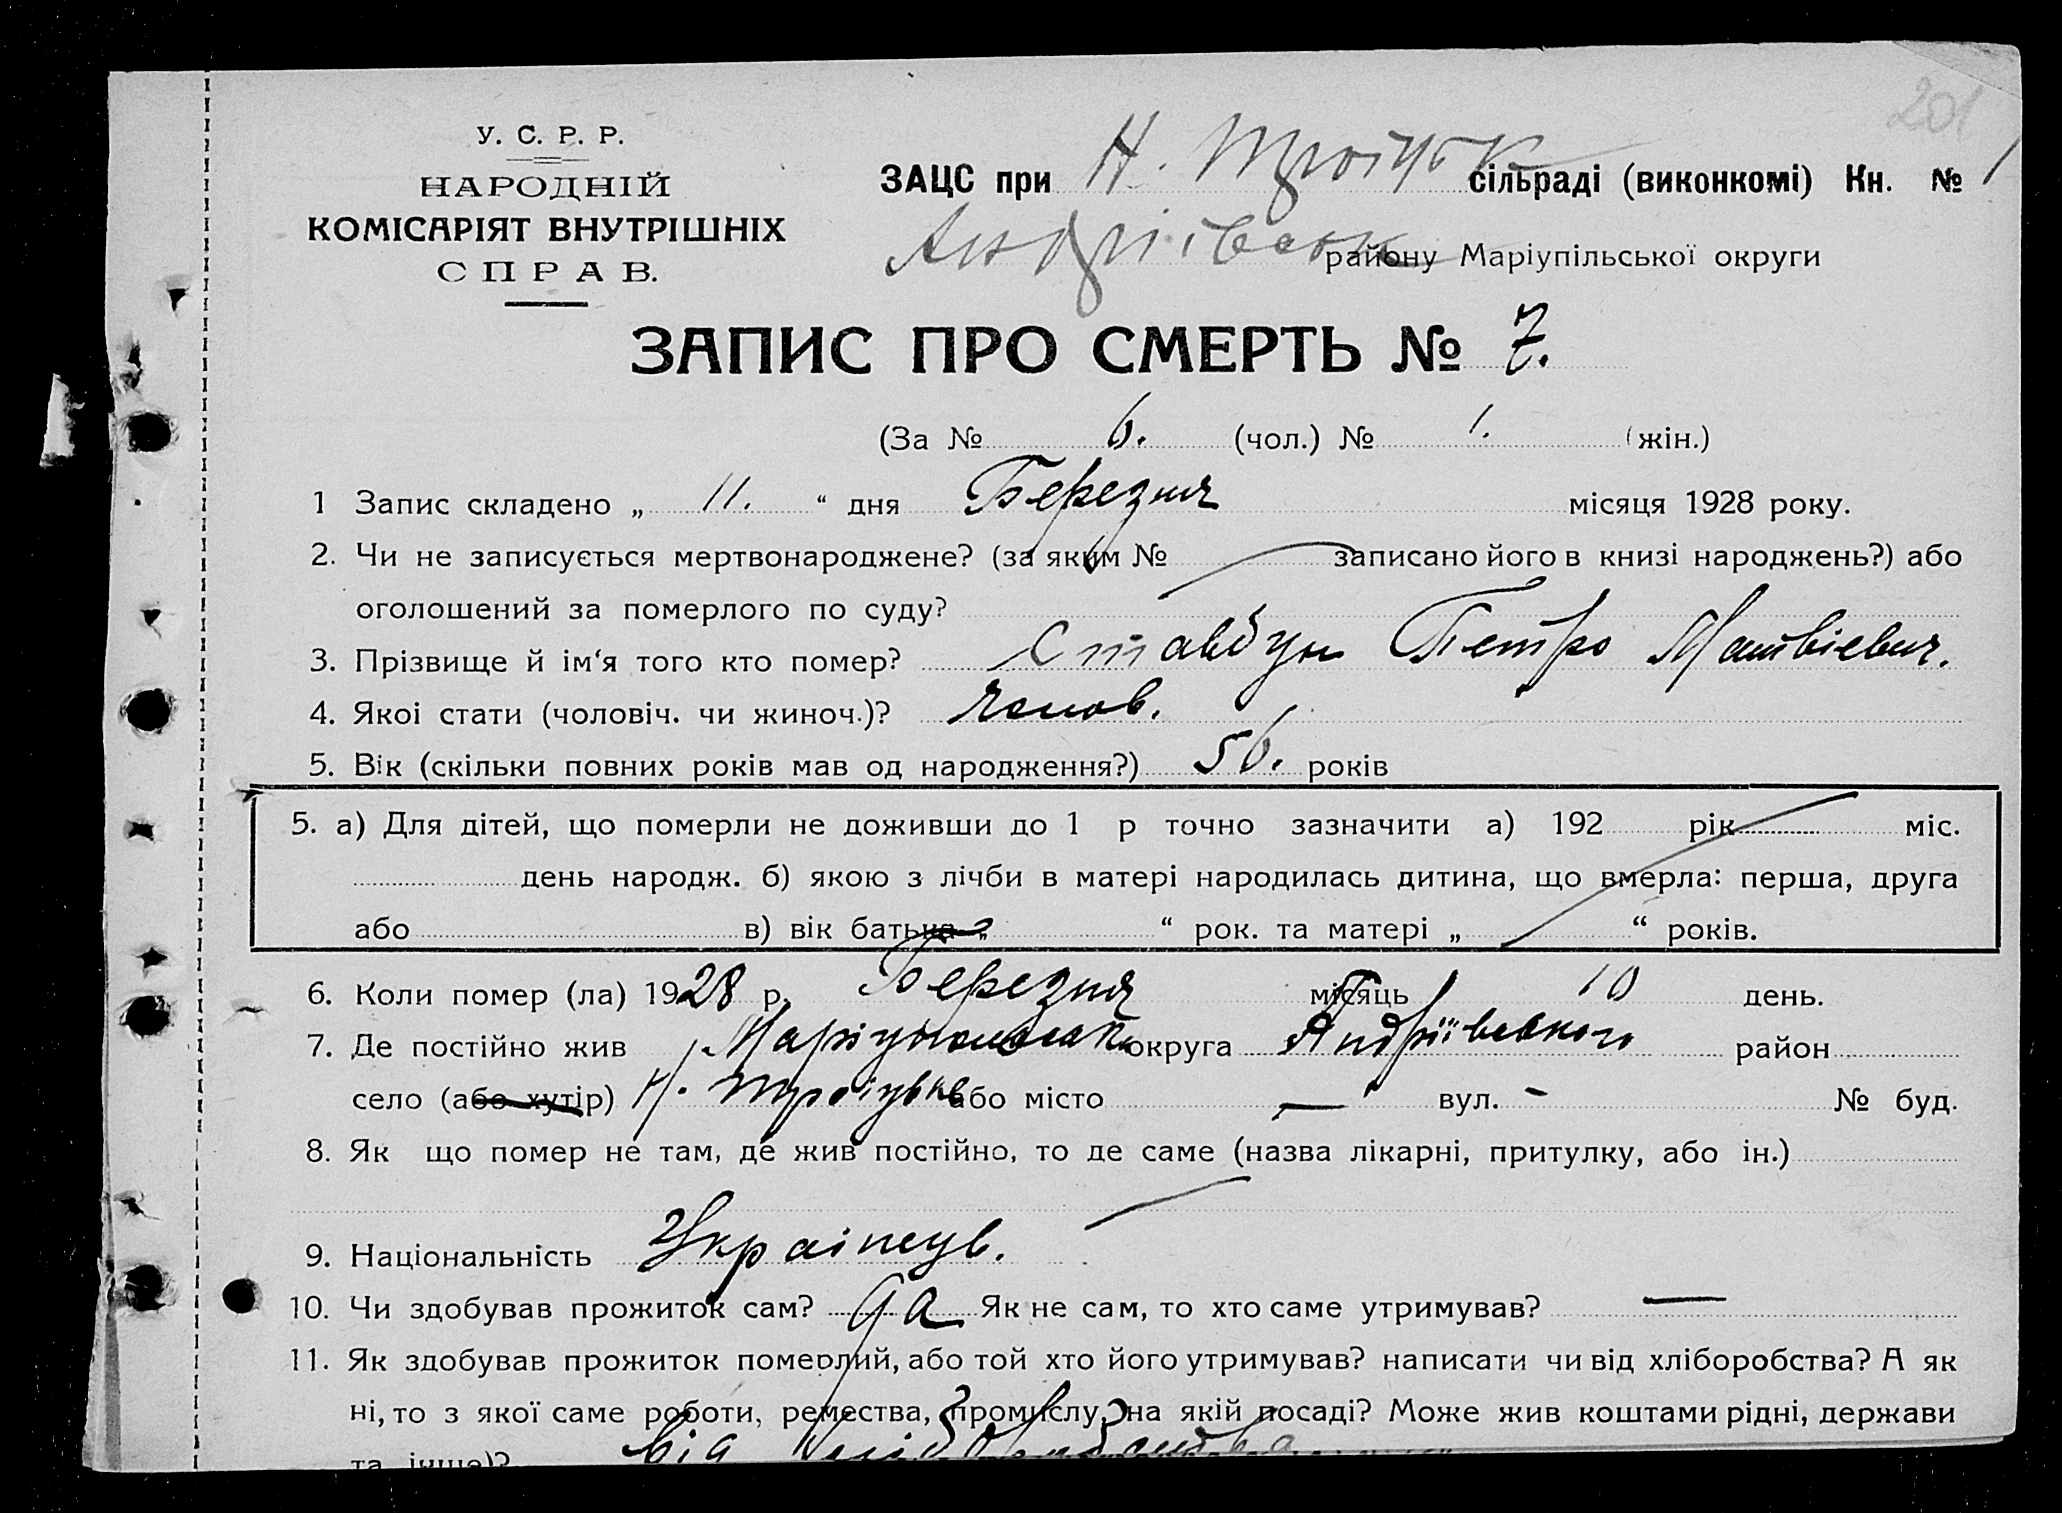 201
У. С. Р. Р.
НАРОДНІЙ
КОМІСАРІЯТ ВНУТРІШНІХ
СПРАВ.
ЗАЦС при Н. Троїцьк сільраді (виконкомі) Кн. № 1
Андріївськ району Маріупільської округи
ЗАПИС ПРО СМЕРТЬ № 7.
(За № 6. (чол.) № 1. (жін.)
1 Запис складено „ 11. “ дня Березня місяця 1928 року.
2. Чи не записується мертвонароджене? (за яким № записано його в книзі народжень?) або
оголошений за померлого по суду?
3. Прізвище й ім‘я того кто помер? Ставбун Петро Матвієвич.
4. Якоі стати (чоловіч. чи жиноч.)? Чолов.
5. Вік (скільки повних років мав од народження?) 56. років
5. а) Для дітей, що померли не доживши до 1 р точно зазначити а) 192 рік міс.
день народж. б) якою з лічби в матері народилась дитина, що вмерла: перша, друга
або в) вік батька „ “ рок. та матері „ “ років.
6. Коли помер (ла) 1928 р. Березня місяць 10 день.
7. Де постійно жив округа Андріївського район
село (або хутір) Н. Троіцьке або місто — вул. - № буд.
8. Як що помер не там, де жив постійно, то де саме (назва лікарні, притулку, або ін.)
9. Національність Украінець.
10. Чи здобував прожиток сам? да Як не сам, то хто саме утримував? —
11. Як здобував прожиток померлий, або той хто його утримував? написати чи від хліборобства? А як
ні, то з якої саме роботи, ремества, промислу, на якій посаді? Може жив коштами рідні, держави
та інше)? від хліборобства